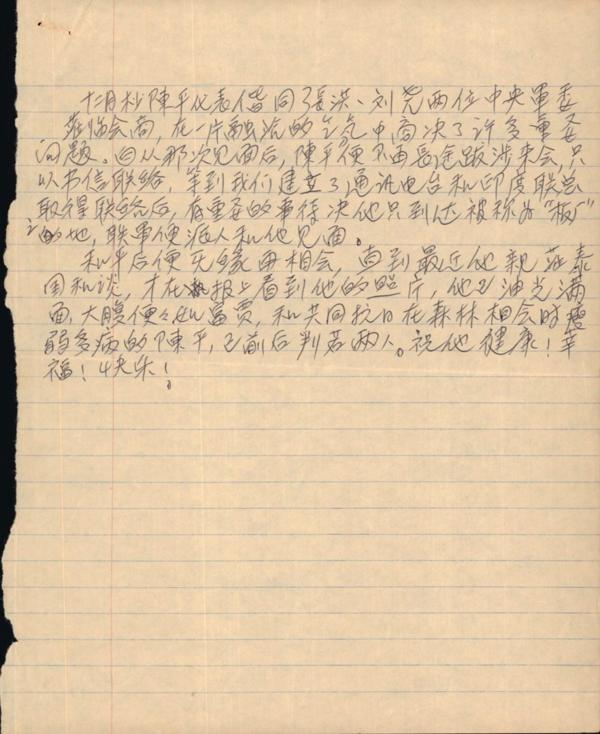 十二月杪陳平代表偕同張洪、刘尧两位中央軍委
莅临会商，在一片融洽的气中商决了许多重要
问题。自从那次见面后，陳平便不再長途跋涉来会，只
以书信联络，等到我们建立了通讯电台和印度联总
取得联络后，有重要的事待决他只到达被称为"板厂"
的地，联軍便派人和他见面。
和平后便无缘再相会，直到最近他親莅泰
国和谈，才在报上看到他的照片，他已油光满
面，大腹便々如富贾，和共同抗日在森林相会时瘦
弱多病的陳平，已前后判若两人。祝他健康！幸
福！快乐！